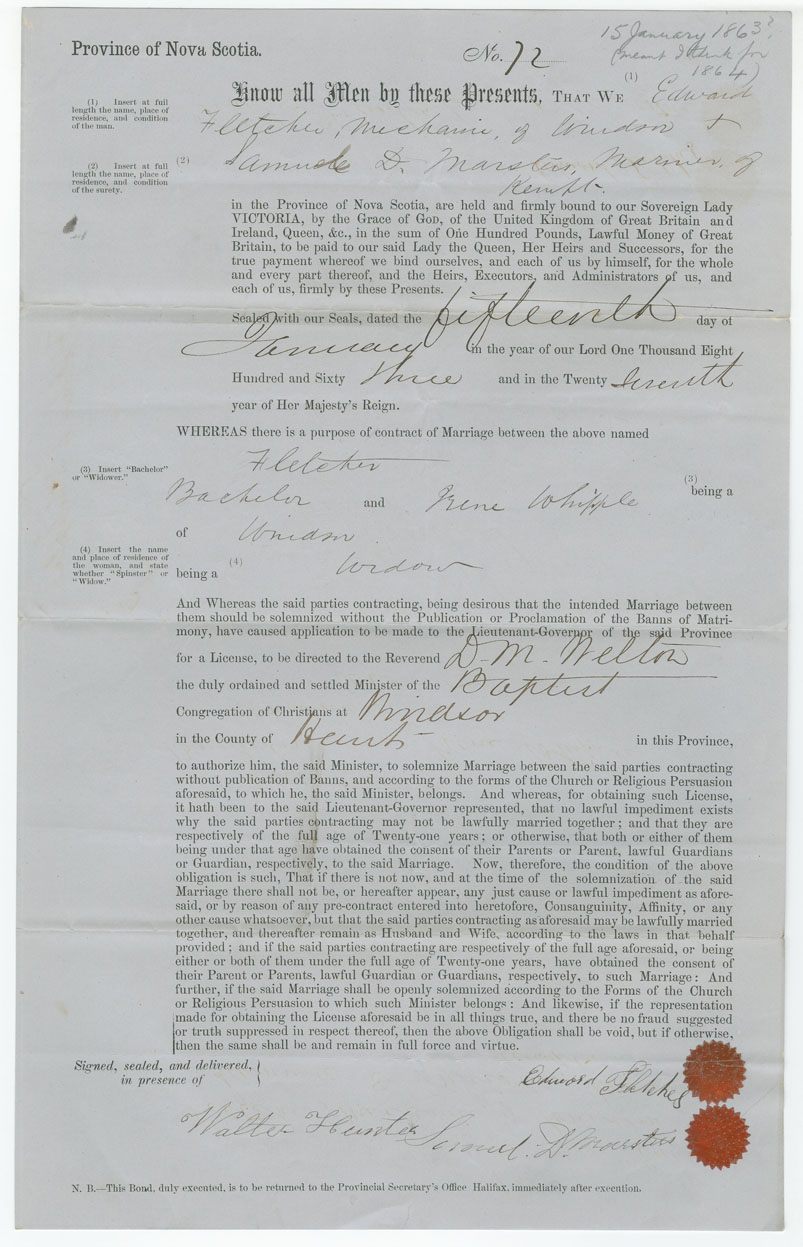 15 January 1863?
(meant I think for
1864)
Province of Nova Scotia.
No. 72
(1) Insert at full length the name, place of residence, and condition of the man.
Know all Men by these Presents, THAT WE (1) Edward
Fletcher, Mechanic, of Windsor &
(2) Insert at full length the name, place of residence, and condition of the surety.
(2) Samuel D. Marsters, Mariner, of
Kempt.
in the Province of Nova Scotia, are held and firmly bound to our Sovereign Lady
VICTORIA, by the Grace of GOD, of the United Kingdom of Great Britain and
Ireland, Queen, &c., in the sum of One Hundred Pounds, Lawful Money of Great
Britain, to be paid to our said Lady the Queen, Her Heirs and Successors, for the
true payment whereof we bind ourselves, and each of us by himself, for the whole
and every part thereof, and the Heirs, Executors, and Administrators of us, and
each of us, firmly by these Presents.
Sealed with our Seals, dated the fifteenth day of
January in the year of our Lord One Thousand Eight
Hundred and Sixty three and in the Twenty seventh
year of Her Majesty's Reign.
WHEREAS there is a purpose of contract of Marriage between the above named
Fletcher
(3) Insert "Bachelor" or "Widower."
(3) being a
Bachelor and Irene Whipple
of Windsor
(4) Insert the name and place of residence of the woman, and state whether "Spinster" or "Widow."
being a (4) Widow
And Whereas the said parties contracting, being desirous that the intended Marriage between
them should be solemnized without the Publication or Proclamation of the Banns of Matri-
mony, have caused application to be made to the Lieutenant-Governor of the said Province
for a License, to be directed to the Reverend D. M. Welton
the duly ordained and settled Minister of the Baptist
Congregation of Christians at Windsor
in the County of Hants in this Province,
to authorize him, the said Minister, to solemnize Marriage between the said parties contracting
without publication of Banns, and according to the forms of the Church or Religious Persuasion
aforesaid, to which he, the said Minister, belongs. And whereas, for obtaining such License,
it hath been to the said Lieutenant-Governor represented, that no lawful impediment exists
why the said parties contracting may not be lawfully married together; and that they are
respectively of the full age of Twenty-one years; or otherwise, that both or either of them
being under that age have obtained the consent of their Parents or Parent, lawful Guardians
or Guardian, respectively, to the said Marriage. Now, therefore, the condition of the above
obligation is such, That if there is not now, and at the time of the solemnization of the said
Marriage there shall not be, or hereafter appear, any just cause or lawful impediment as afore-
said, or by reason of any pre-contract entered into heretofore, Consanguinity, Affinity, or any
other cause whatsoever, but that the said parties contracting as aforesaid may be lawfully married
together, and thereafter remain as Husband and Wife, according to the laws in that behalf
provided; and if the said parties contracting are respectively of the full age aforesaid, or being
either or both of them under the full age of Twenty-one years, have obtained the consent of
their Parent or Parents, lawful Guardian or Guardians, respectively, to such Marriage: And
further, if the said Marriage shall be openly solemnized according to the Forms of the Church
or Religious Persuasion to which such Minister belongs: And likewise, if the representation
made for obtaining the License aforesaid be in all things true, and there be no fraud suggested
or truth suppressed in respect thereof, then the above Obligation shall be void, but if otherwise,
then the same shall be and remain in full force and virtue.
Signed, sealed, and delivered,
in presence of
Edword Fletcher
Walter Hunter
Samuel. D. Marsters
N. B.—This Bond, duly executed, is to be returned to the Provincial Secretary's Office Halifax, immediately after execution.